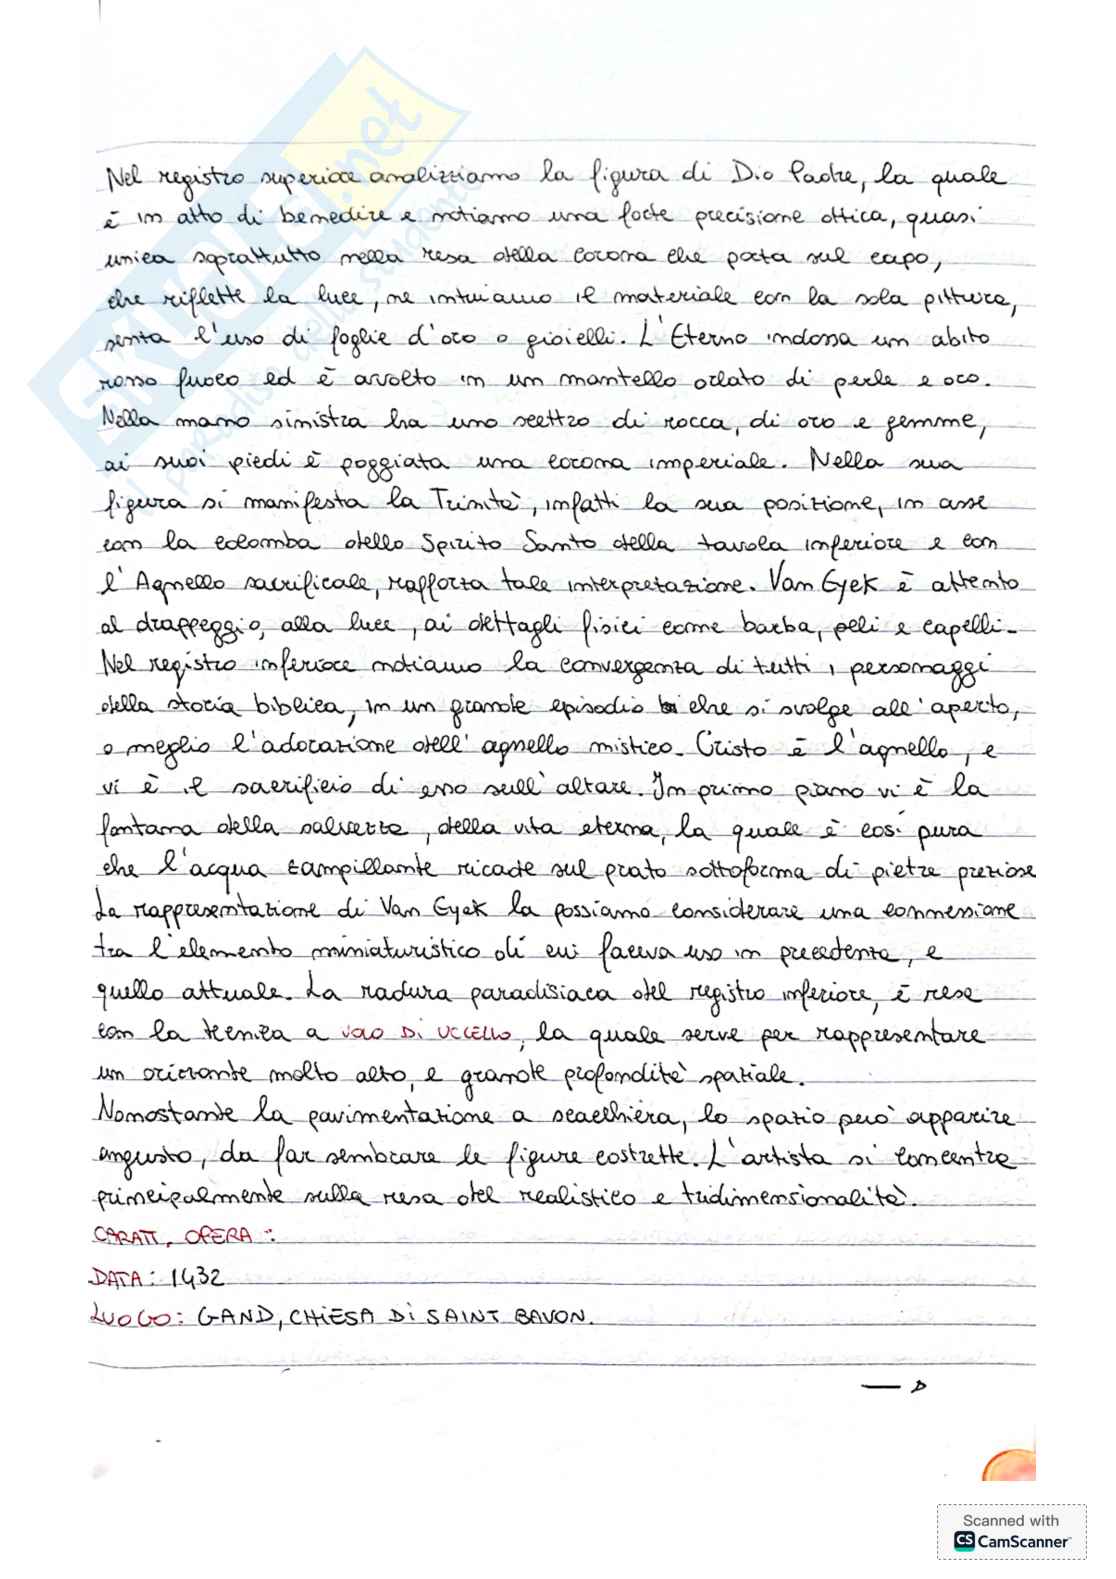 Nel registro superiore analizziamo la figura di Dio Padre, la quale
è in atto di benedire e notiamo una forte precisione ottica, quasi
unica soprattutto nella resa della corona che porta sul capo,
che riflette la luce, ne intuiamo il materiale con la sola pittura,
senza l'uso di foglie d'oro o gioielli. L'Eterno indossa un abito
rosso fuoco ed è avvolto in un mantello orlato di perle e oro.
Nella mano sinistra ha uno scettro di rocca, di oro e gemme,
ai suoi piedi è poggiata una corona imperiale. Nella sua
figura si manifesta la Trinità, infatti la sua posizione, in asse
con la colomba dello Spirito Santo della tavola inferiore e con
l'Agnello sacrificale, rafforza tale interpretazione. Van Eyek è attento
al drappeggio, alla luce, ai dettagli fisici come barba, peli e capelli.
Nel registro inferiore notiamo la convergenza di tutti i personaggi
della storia biblica, in un grande episodio che si svolge all'aperto,
o meglio l'adorazione dell'agnello mistico. Cristo è l'agnello, e
vi è il sacrificio di esso sull'altare. In primo piano vi è la
fontana della salvezza, della vita eterna, la quale è così pura
che l'acqua zampillante ricade sul prato sottoforma di pietre preziose
La rappresentazione di Van Eyek la possiamo considerare una connessione
tra l'elemento miniaturistico di cui faceva uso in precedenza, e
quello attuale. La radura paradisiaca del registro inferiore, è resa
con la tecnica a VOLO DI UCCELLO, la quale serve per rappresentare
un orizzonte molto alto, e grande profondità spaziale.
Nonostante la pavimentazione a scacchiera, lo spazio può apparire
angusto, da far sembrare le figure costrette. L'artista si concentra
principalmente sulla resa del realistico e tridimensionalità.
CARATT. OPERA:
DATA: 1432
LUOGO: GAND, CHIESA DI SAINT BAVON.
Scanned with
CS CamScanner